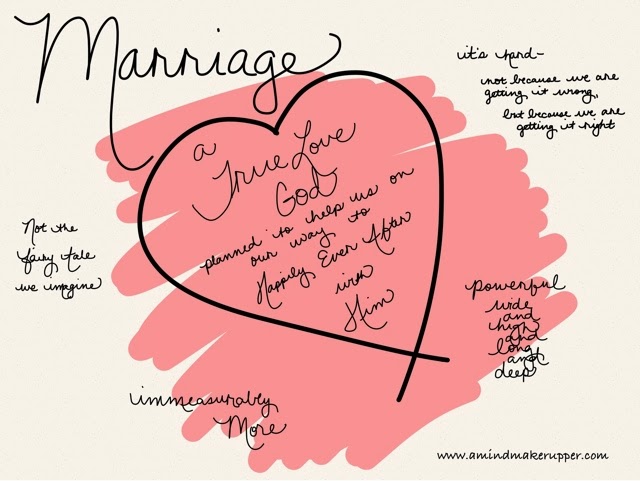 Marriage
it's hard-
not because we are
getting it wrong,
but because we are
getting it right
a
True Love
God
planned to help us on
our way to
Happily Ever After
with
Him
Not the
fairy tale
we imagine
powerful
wide
and
high
and
long
and
deep
immeasurably
More
www.amindmakerupper.com